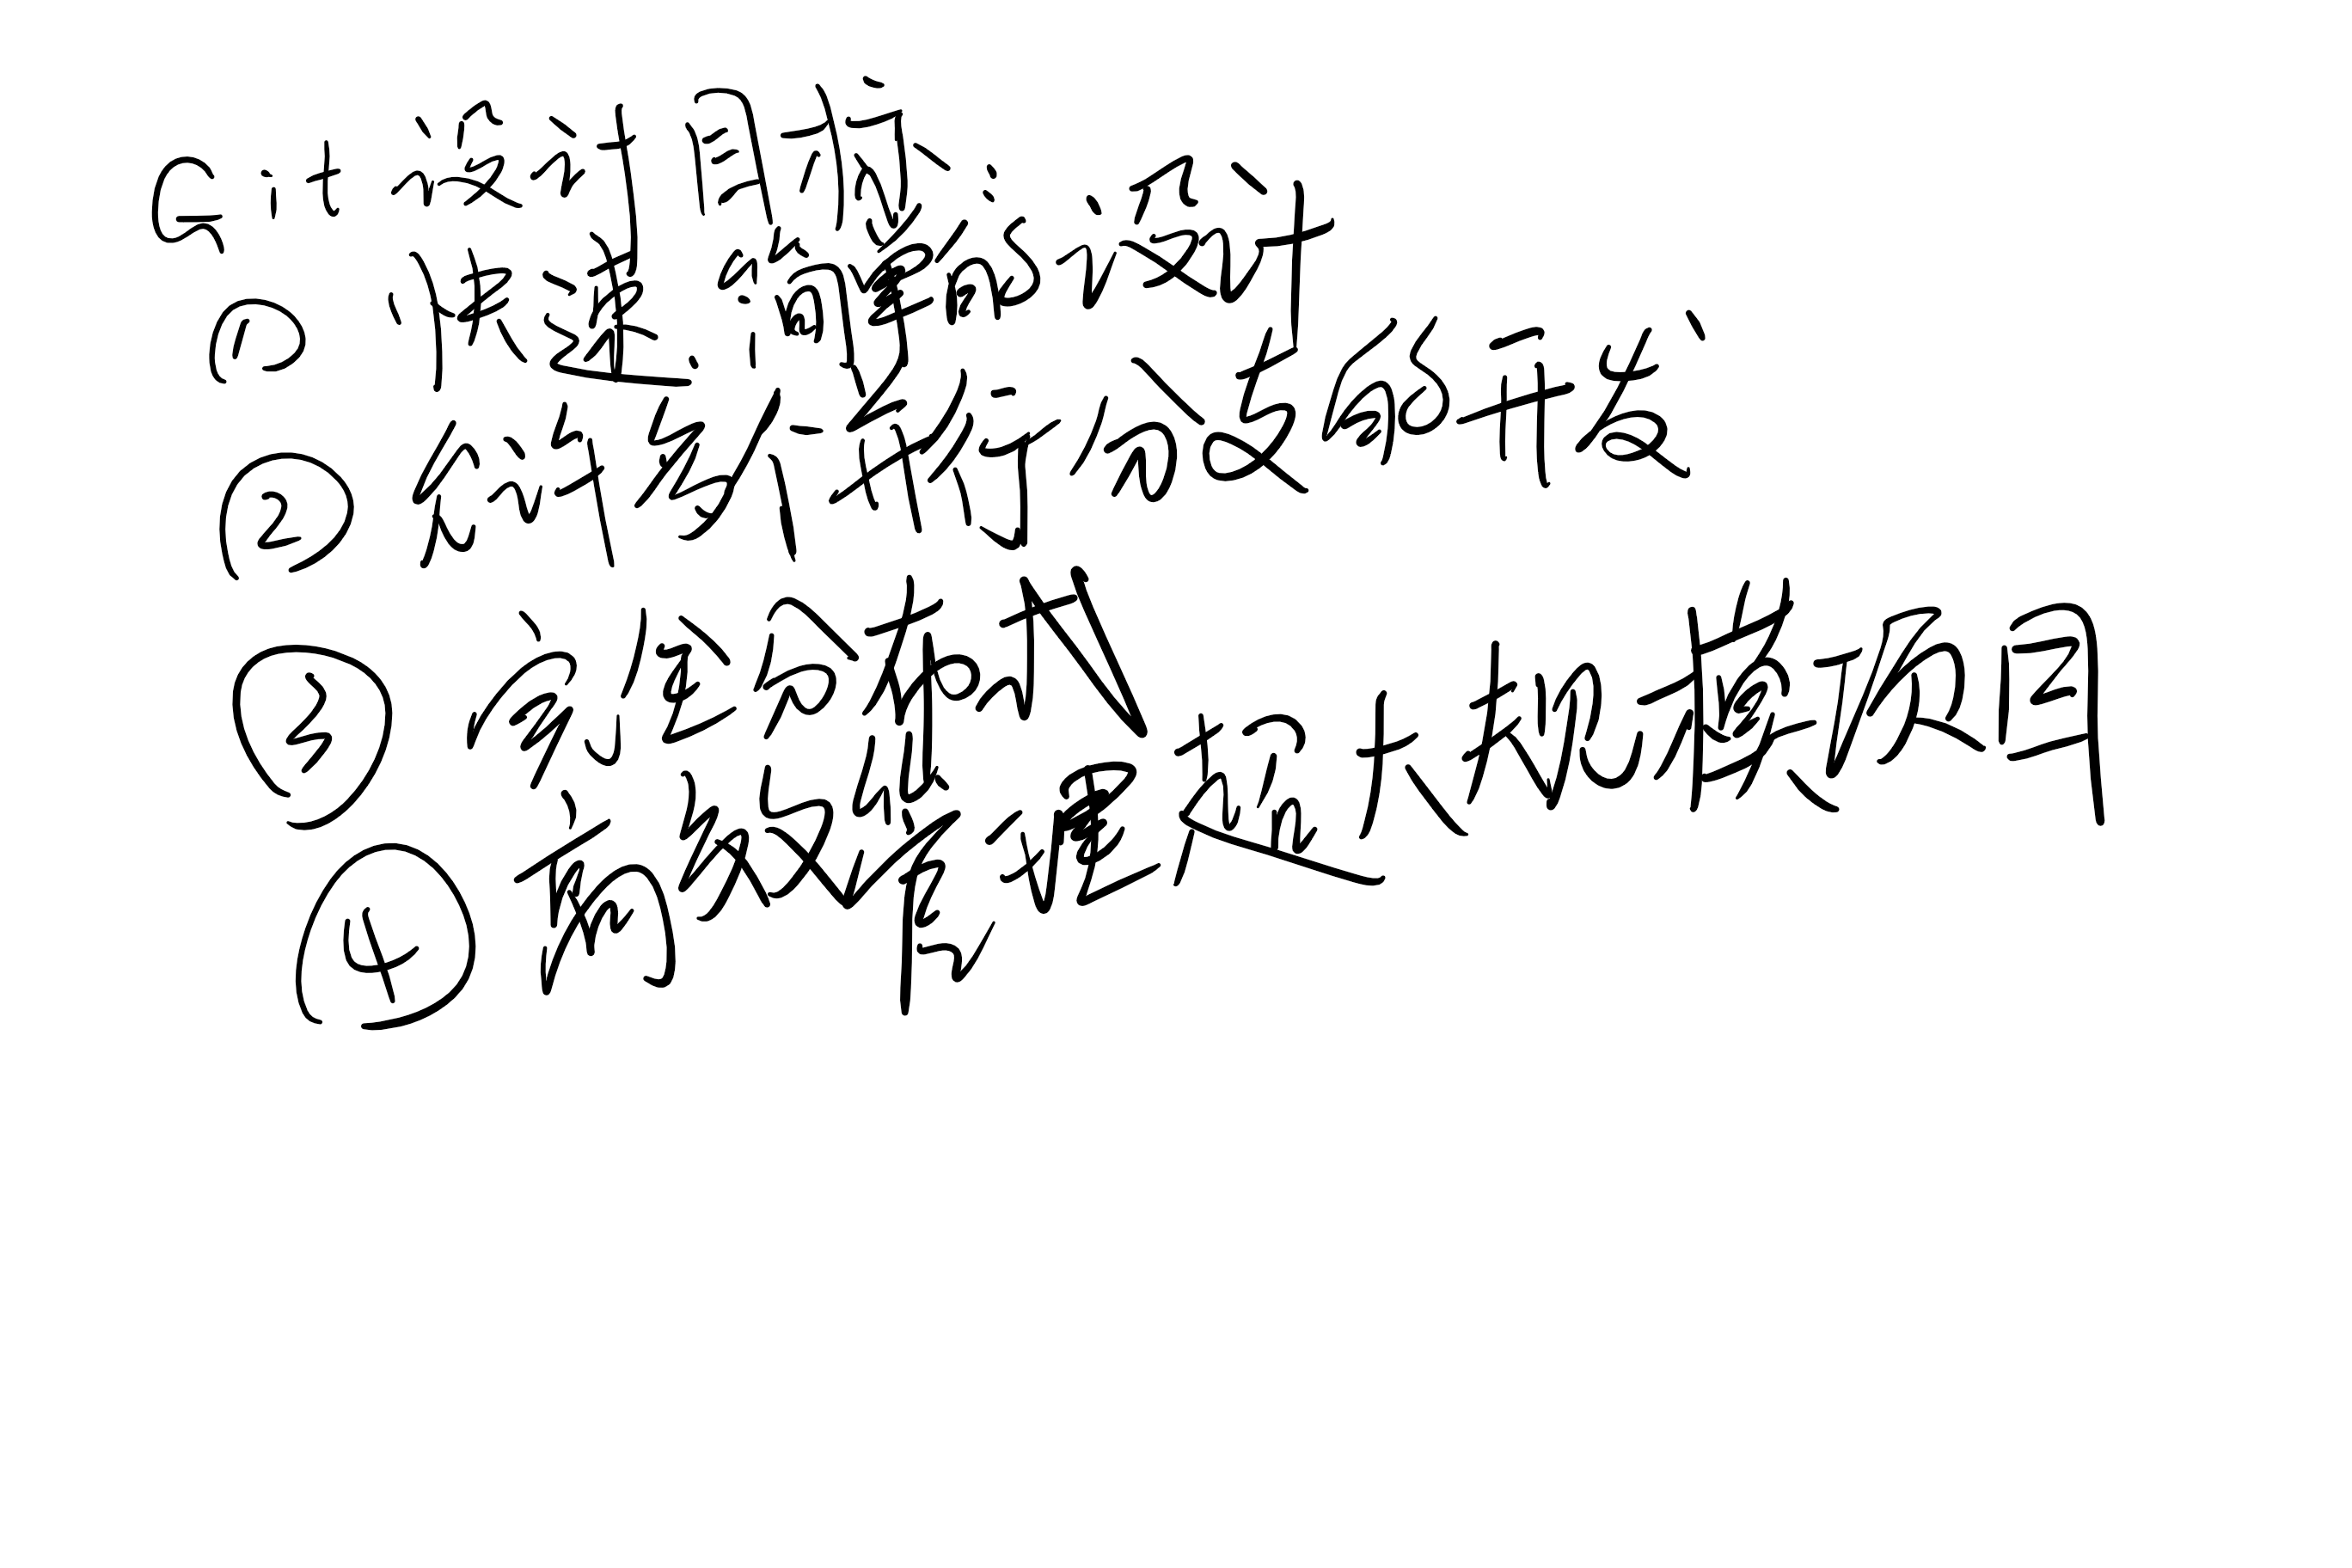 Git 设计目标:
① 快速.简单的设计
② 允许多个并行分支的开发
③ 完全分布式
④ 高效管理超大规模项目